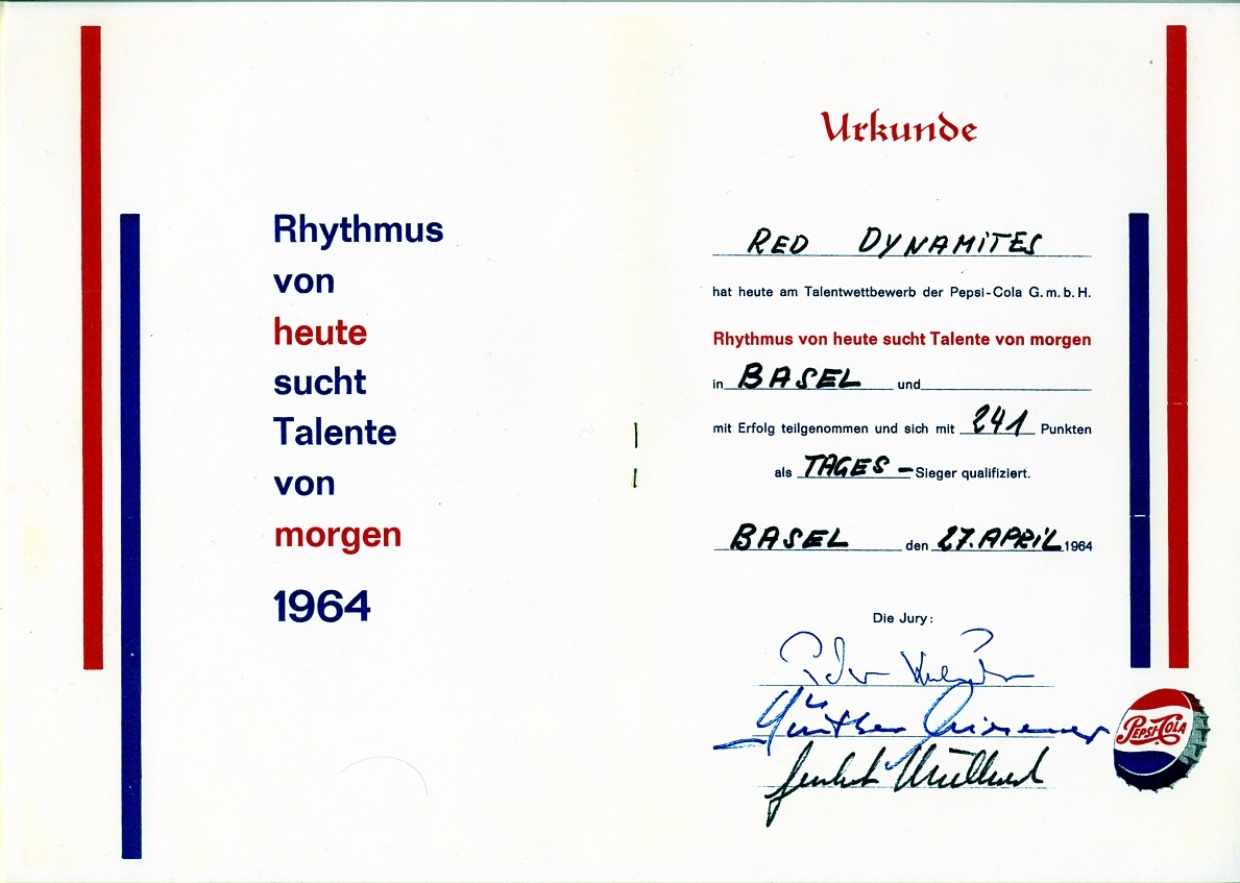 Rhythmus
von
heute
sucht
Talente
von
morgen
1964
Urkunde
RED DYNAMITES
hat heute am Talentwettbewerb der Pepsi-Cola G.m.b.H.
Rhythmus von heute sucht Talente von morgen
in BASEL und
mit Erfolg teilgenommen und sich mit 241 Punkten
als TAGES-Sieger qualifiziert.
BASEL den 27. APRIL 1964
Die Jury:
Günther
PEPSI-COLA